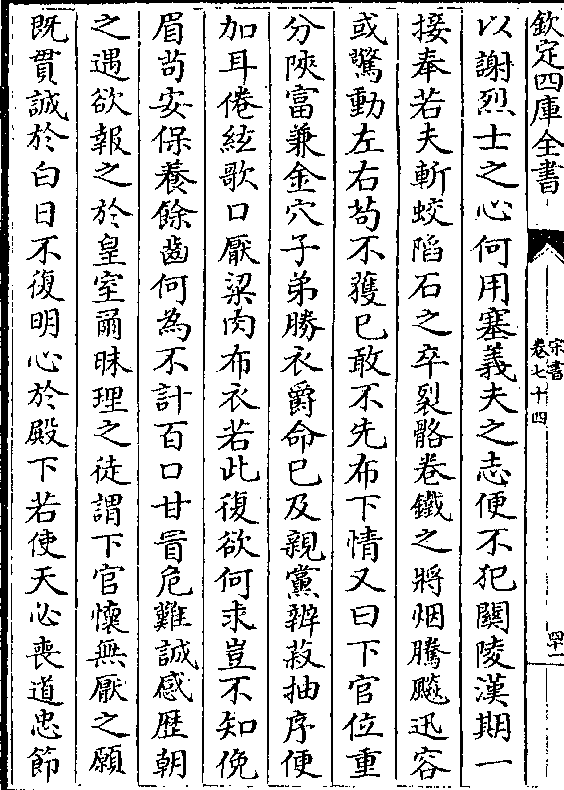 欽定四庫全書
宋書
卷七十四
四十一
以謝烈士之心何用塞義夫之志便不犯關陵漢期一
接奉若夫斬蛟陷石之卒裂骼卷鐵之將烟騰飈迅容
或驚動左右苟不獲已敢不先布下情又曰下官位重
分陝富兼金穴子弟勝衣爵命已及親黨辨菽抽序便
加耳倦絃歌口厭粱肉布衣若此復欲何求豈不知俛
眉苟安保養餘齒何為不計百口甘冒危難誠感歴朝
之遇欲報之於皇室爾昧理之徒謂下官懷無厭之願
既貫誠於白日不復明心於殿下若使天必喪道忠節